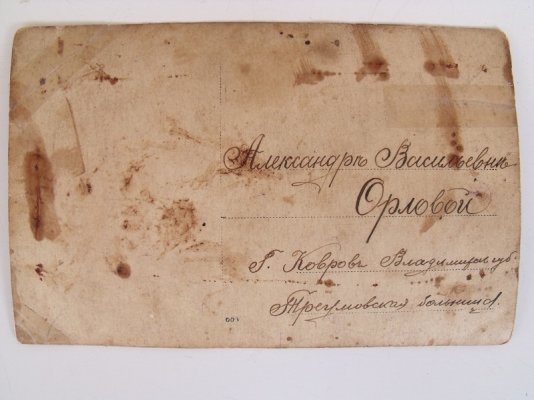 Александрѣ Васильевнѣ
Орловой
Г. Ковровъ Владимирск губ
Треумовская больница.
001